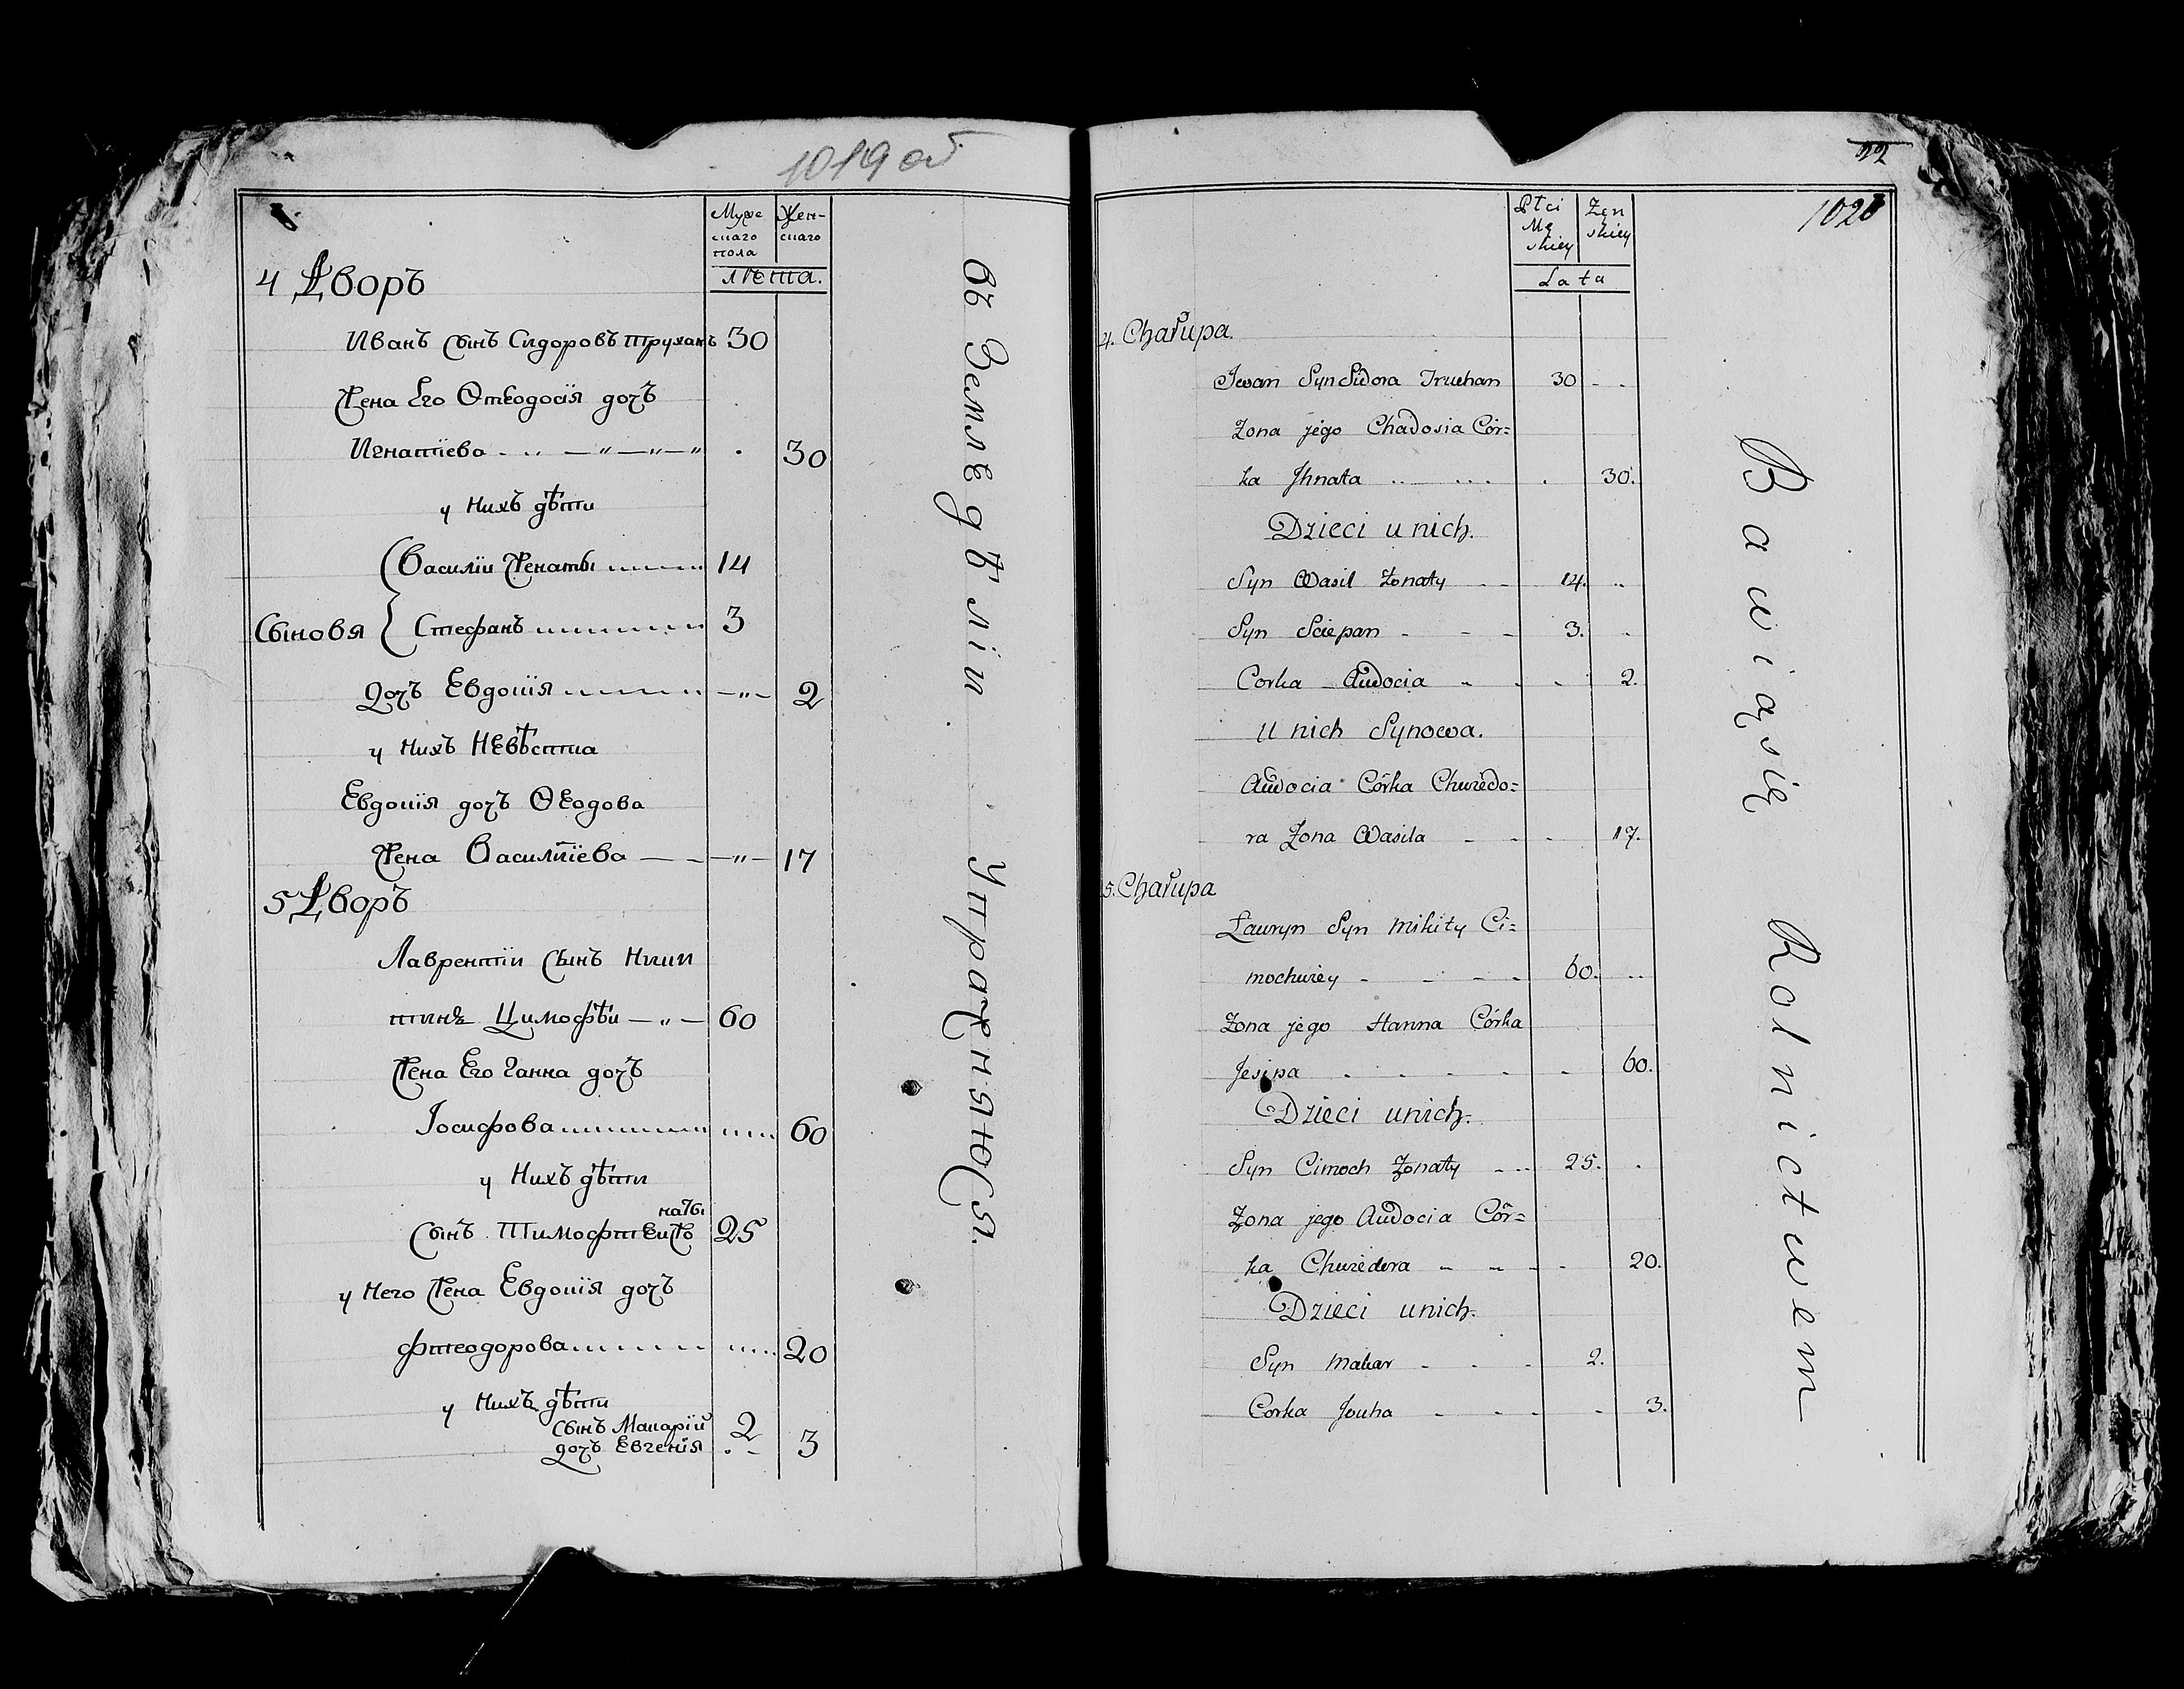 1019 об
Муже
скаго
пола
Жен-
скаго
лѣта.
4 Дворъ
Иванъ сынъ Сидоровъ Труханъ 30
Жена Его Ѳтеодосія дочъ
Игнатіева 30
у нихъ дѣти
Василіи Женаты 14
Сыновя { Стефанъ 3
Дочъ Евдокія 2
у нихъ Невѣстка
Евдокія дочъ Ѳеодова
Жена Василіева 17
5 Дворъ
Лаврентіи сынъ Ники
тинъ Цимофѣи 60
Жена Его Ганна дочъ
Іосифова 60
у нихъ дѣти
наты
Сынъ Тимофтеи Же 25
у Него Жена Евдокія дочъ
Фтеодорова 20
у нихъ дѣти
Сынъ Макарій 2
дочъ Евгенія 3
въ Земледѣліи Упражняюся.
22
1020
Płci
Mę
skiey
Zęn
skiey
Lata
4. Chałupa.
Jwan Syn Sidora Truchan 30
Zona jego Chadosia Cór=
ka Jhnata 30.
Dzieci u nich.
Syn Wasil Zonaty 14.
Syn Sciepan 3.
Corka Audocia 2.
U nich Synowa.
Audocia Córka Chwiedo=
ra Zona Wasila 17.
5. Chałupa
Lauryn Syn Mikity Ci=
mochwiey 60.
Zona jego Hanna Córka
Jesipa 60.
Dzieci unich.
Syn Cimoch Zonaty 25.
Zona jego Audocia Cór=
ka Chwiedera 20.
Dzieci unich.
Syn Makar 2.
Corka Jouha 3.
Bawią się Rolnictwem